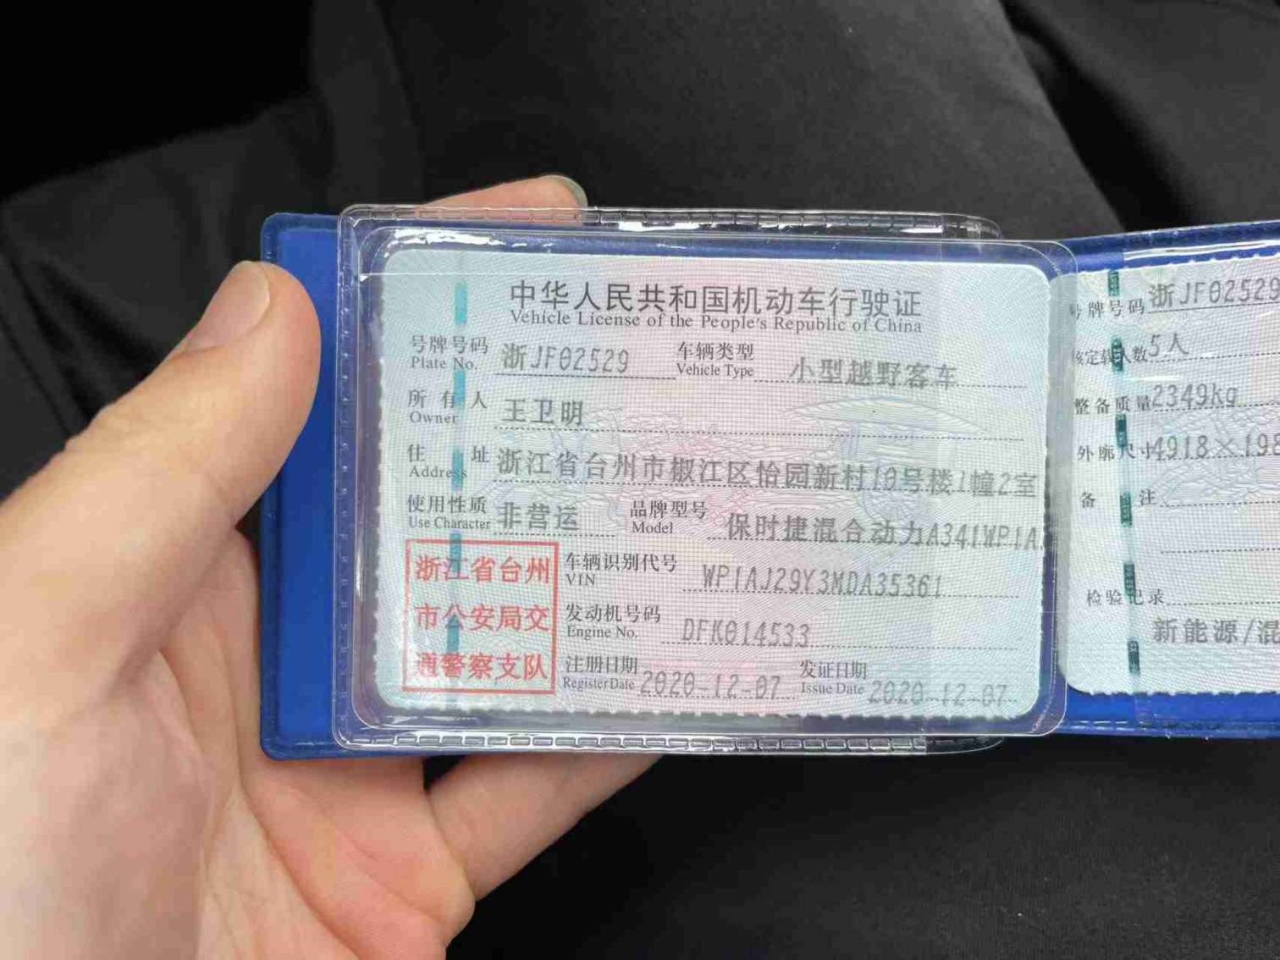 中华人民共和国机动车行驶证
Vehicle License of the People's Republic of China
号牌号码 浙JF02529 车辆类型 小型越野客车
Plate No. Vehicle Type
所有人 王卫明
Owner
住址 浙江省台州市椒江区怡园新村10号楼1幢2室
Address
使用性质 非营运 品牌型号 保时捷混合动力A341WP1A
Use Character Model
浙江省台州
市公安局交
通警察支队
车辆识别代号 WP1AJ29Y3MDA35361
VIN
发动机号码 DFK014533
Engine No.
注册日期 2020-12-07 发证日期 2020-12-07
Register Date Issue Date
号牌号码 浙JF02529
核定载人数 5人
整备质量 2349kg
外廓尺寸 4918×198
备注
检验记录
新能源/混